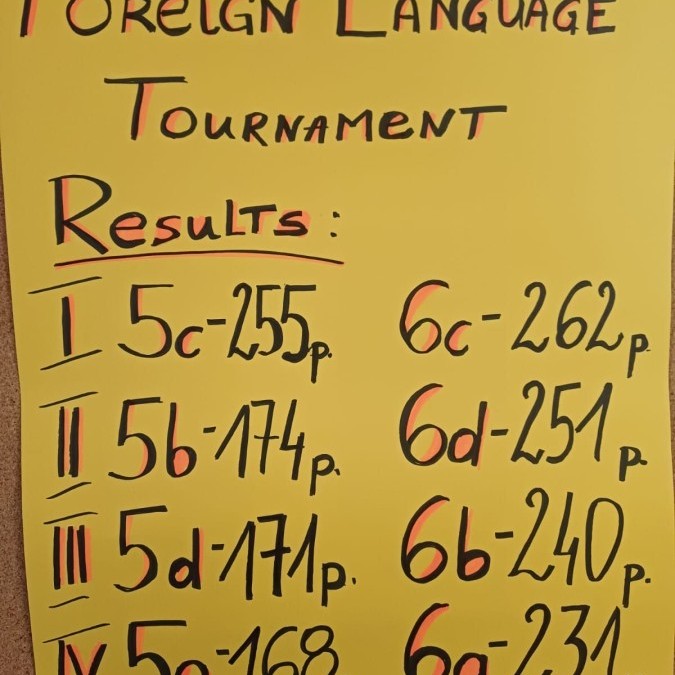 FOREIGN LANGUAGE
TOURNAMENT
RESULTS:
I 5c-255p. 6c-262p.
II 5b-174p. 6d-251p.
III 5d-171p. 6b-240p.
IV 5a-168 6a-231